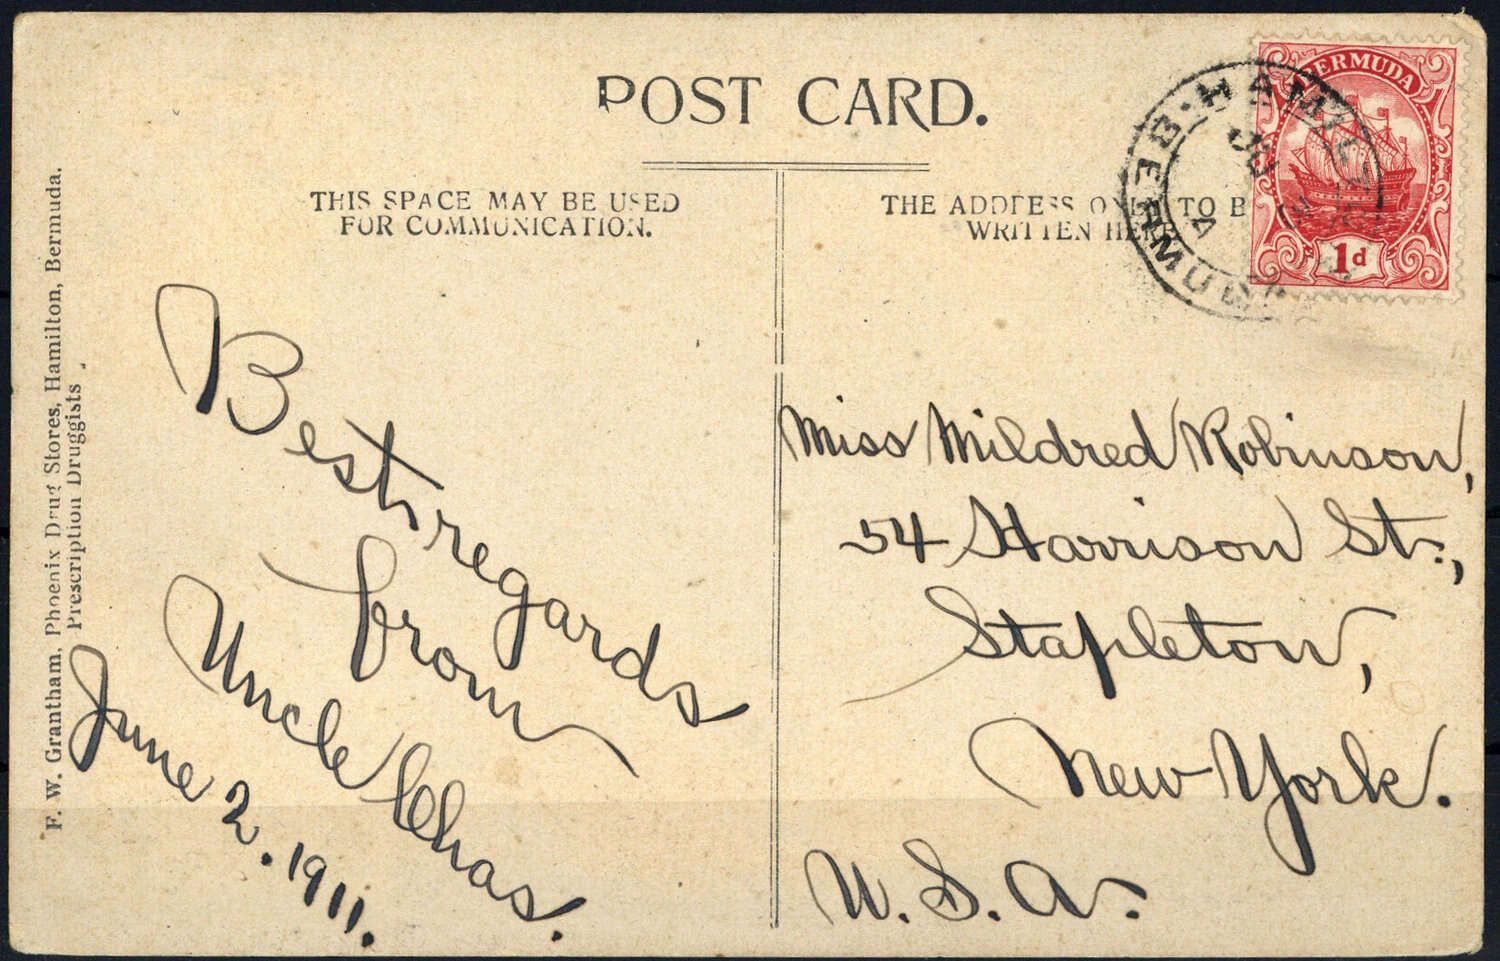 POST CARD.
THIS SPACE MAY BE USED
FOR COMMUNICATION.
THE ADDRESS ONLY TO B
WRITTEN HERE
BERMUDA
1d
HAMILT
BERMUDA
JU
4
F. W. Grantham, Phoenix Drug Stores, Hamilton, Bermuda.
Prescription Druggists
Best regards
from
Uncle Chas.
June 2. 1911.
Miss Mildred Robinson,
54 Harrison St.,
Stapleton,
New York.
U. S. A.